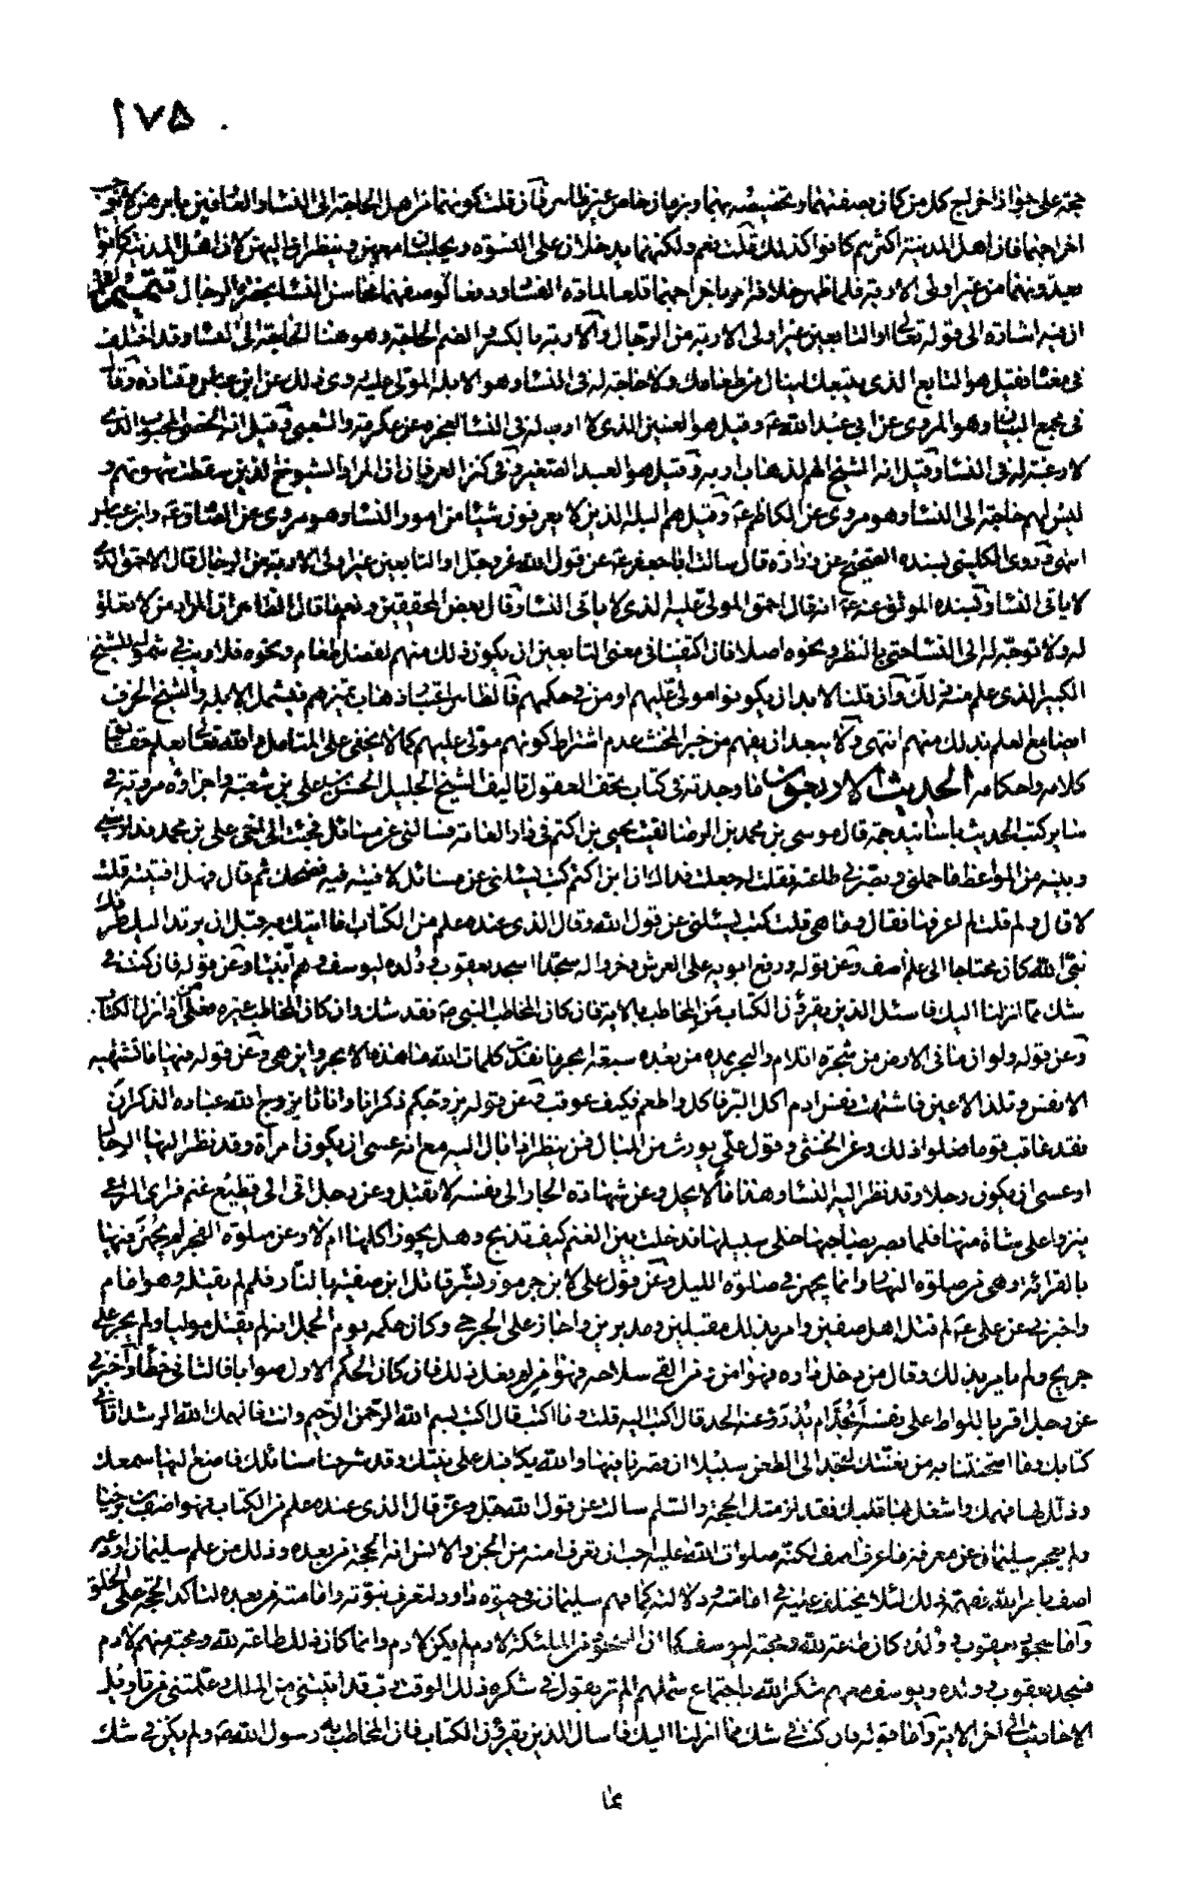 ١٧٥
حجة على جواز اخراج كل من كان بصفتهما وتخصيصه بهما وبزمان خاص غير ظاهر فان قلت كونهما من اهل الحاجة الى النساء والعامين بامرهن لا يوجب
اخراجهما فان اهل المدينة اكثرهم كانوا كذلك قلت نعم ولكنهما يدخلان على النسوة ويجلسان معهن وينظران اليهن لان اهل المدينة كانوا
يعدونهما من غير اولى الاربة فلما ظهر خلافه امر باخراجهما قلعا لمادة الفساد ودفعا لوصفهما محاسن النساء بحضرة الرجال تتميم
ان فيه اشارة الى قوله تعالى او التابعين غير اولى الاربة من الرجال والاربة بالكسر والضم الحاجة وهو هنا الحاجة الى النساء وقد اختلف
في معناه فقيل هو التابع الذى يتبعك لينال من طعامك ولا حاجة له في النساء وهو الابله المولى عليه روى ذلك عن ابن عباس وقتادة وقال
في مجمع البيان وهو المروى عن ابي عبد الله ع وقيل هو العنين الذى لا ارب له في النساء لعجزه عن عكرمة والشعبي وقيل انه الخصى المجبوب الذى
لا رغبة له في النساء وقيل انه الشيخ الهم لذهاب اربه وقيل هو العبد الصغير وفي كنز العرفان ان المراد الشيوخ الذين سقطت شهوتهم و
ليس لهم حاجة الى النساء وهو مروى عن الكاظم ع وقيل هم البله الذين لا يعرفون شيئا من امور النساء وهو مروى عن الصادق ع وابن عباس
انتهى وروى الكليني بسنده الصحيح عن زرارة قال سالت ابا جعفر ع عن قول الله عز وجل او التابعين غير اولى الاربة من الرجال قال الاحمق الذى
لا ياتى النساء وبسنده الموثق عنه ع انه قال احمق المولى عليه الذى لا ياتى النساء وقال بعض المحققين ونعم ما قال الظاهر ان المراد من لا تعلق
له ولا توجه له الى النساء حتى بالنظر ونحوه اصلا فان اكتفينا في معنى التابعين ان يكون ذلك منهم لفضل طعام ونحوه فلا ريب في شموله للشيخ
الكبير الذى علم منه ذلك وان قلنا لابد ان يكونوا مولى عليهم او من في حكمهم فالظاهر اعتبار ذهاب تميزهم فيشمل الابله والشيخ الخرف
ايضا مع العلم بذلك منهم انتهى ولا يبعد ان يفهم من خبر المخنث عدم اشتراط كونهم مولى عليهم كما لا يخفى على المتامل والله تعالى يعلم حقايق
كلامه واحكامه الحديث الاربعون ما وجدته في كتاب تحف العقول تاليف الشيخ الجليل الحسن بن علي بن شعبة واجزاؤه مروية في
ساير كتب الحديث باسانيد جمة قال موسى بن محمد بن الرضا لقيت يحيى بن اكثم في دار العامة فسالني عن مسائل فجئت الى اخي علي بن محمد فدار بيني
وبينه من المواعظ ما حملني وبصرني طاعته فقلت له جعلت فداك ان ابن اكثم كتب يسئلني عن مسائل لافتيه فيه فضحك ثم قال فهل افتيته قلت
لا قال ولم قلت لم اعرفها فقال وما هي قلت كتب يسئلني عن قول الله وقال الذى عنده علم من الكتاب انا اتيك به قبل ان يرتد اليك طرفك
نبى الله كان محتاجا الى علم اصف وعن قوله ورفع ابويه على العرش وخروا له سجدا اسجد يعقوب وولده ليوسف وهم انبياء وعن قوله فان كنت في
شك مما انزلنا اليك فاسئل الذين يقرؤن الكتاب من المخاطب بالاية فان كان المخاطب النبي ص فقد شك وان كان المخاطب غيره فعلى من اذا انزل الكتاب
وعن قوله ولو ان ما في الارض من شجرة اقلام والبحر يمده من بعده سبعة ابحر ما نفدت كلمات الله ما هذه الابحر واين هي وعن قوله فيها ما تشتهيه
الانفس وتلذ الاعين فاشتهت نفس ادم اكل البر فاكل واطعم فكيف عوقب وعن قوله يزوجكم ذكرانا واناثا يزوج الله عباده الذكران
فقد عاقب قوما فعلوا ذلك وعن الخنثى وقول علي يورث من المبال فمن ينظر اذا بال اليه مع انه عسى ان يكون امرأة وقد نظر اليها الرجال
او عسى ان يكون رجلا وقد نظر اليه النساء وهذا مما لا يحل وعن شهادة الجار الى نفسه لا تقبل وعن رجل اتى الى قطيع غنم فراى الراعى
ينزوا على شاة منها فلما بصر بصاحبها خلى سبيلها فدخلت بين الغنم كيف تذبح وهل يجوز اكلها ام لا وعن صلوة الفجر لم يجهر فيها
بالقرائة وهي من صلوة النهار وانما يجهر في صلوة الليل وعن قول علي لابن جرموز بشر قاتل ابن صفية بالنار فلم لم يقتله وهو امام
واخبرني عن علي ع لم قتل اهل صفين وامر بذلك مقبلين ومدبرين واجاز على الجرحى وكان حكمه يوم الجمل انه لم يقتل موليا ولم يجز على
جريح ولم يامر بذلك وقال من دخل داره فهو امن ومن القى سلاحه فهو امن لم فعل ذلك فان كان الحكم الاول صوابا فالثاني خطأ واخبرني
عن رجل اقر باللواط على نفسه أيحد ام يدرؤ عنه الحد قال اكتب اليه قلت وما اكتب قال اكتب بسم الله الرحمن الرحيم وانت فالهمك الله الرشد اتاني
كتابك وما امتحنتنا به من تعنتك لتجد الى الطعن سبيلا ان قصرنا فيها والله يكافيك على نيتك وقد شرحنا مسائلك فاصغ اليها سمعك
وذلل لها فهمك واشغل بها قلبك فقد لزمتك الحجة والسلم سالت عن قول الله جل وعز قال الذى عنده علم من الكتاب فهو اصف بن برخيا
ولم يعجز سليمان عن معرفة ما عرف اصف لكنه صلوات الله عليه احب ان تعرف امته من الجن والانس انه الحجة من بعده وذلك من علم سليمان اودعه
اصف بامر الله ففهمه ذلك لئلا يختلف عليه في امامته ودلالته كما فهم سليمان في حيوة داود لتعرف نبوته وامامته من بعده لتاكد الحجة على الخلق
واما سجود يعقوب وولده كان طاعة لله ومحبة ليوسف كما ان السجود من الملئكة لادم لم يكن لادم وانما كان ذلك طاعة لله ومحبة منهم لادم
فسجد يعقوب وولده ويوسف معهم شكرا لله باجتماع شملهم الم تر يقول في شكره ذلك الوقت رب قد اتيتني من الملك وعلمتني من تاويل
الاحاديث الى اخر الاية واما قوله فان كنت في شك مما انزلنا اليك فاسال الذين يقرؤن الكتاب فان المخاطب به رسول الله ص ولم يكن في شك
مما